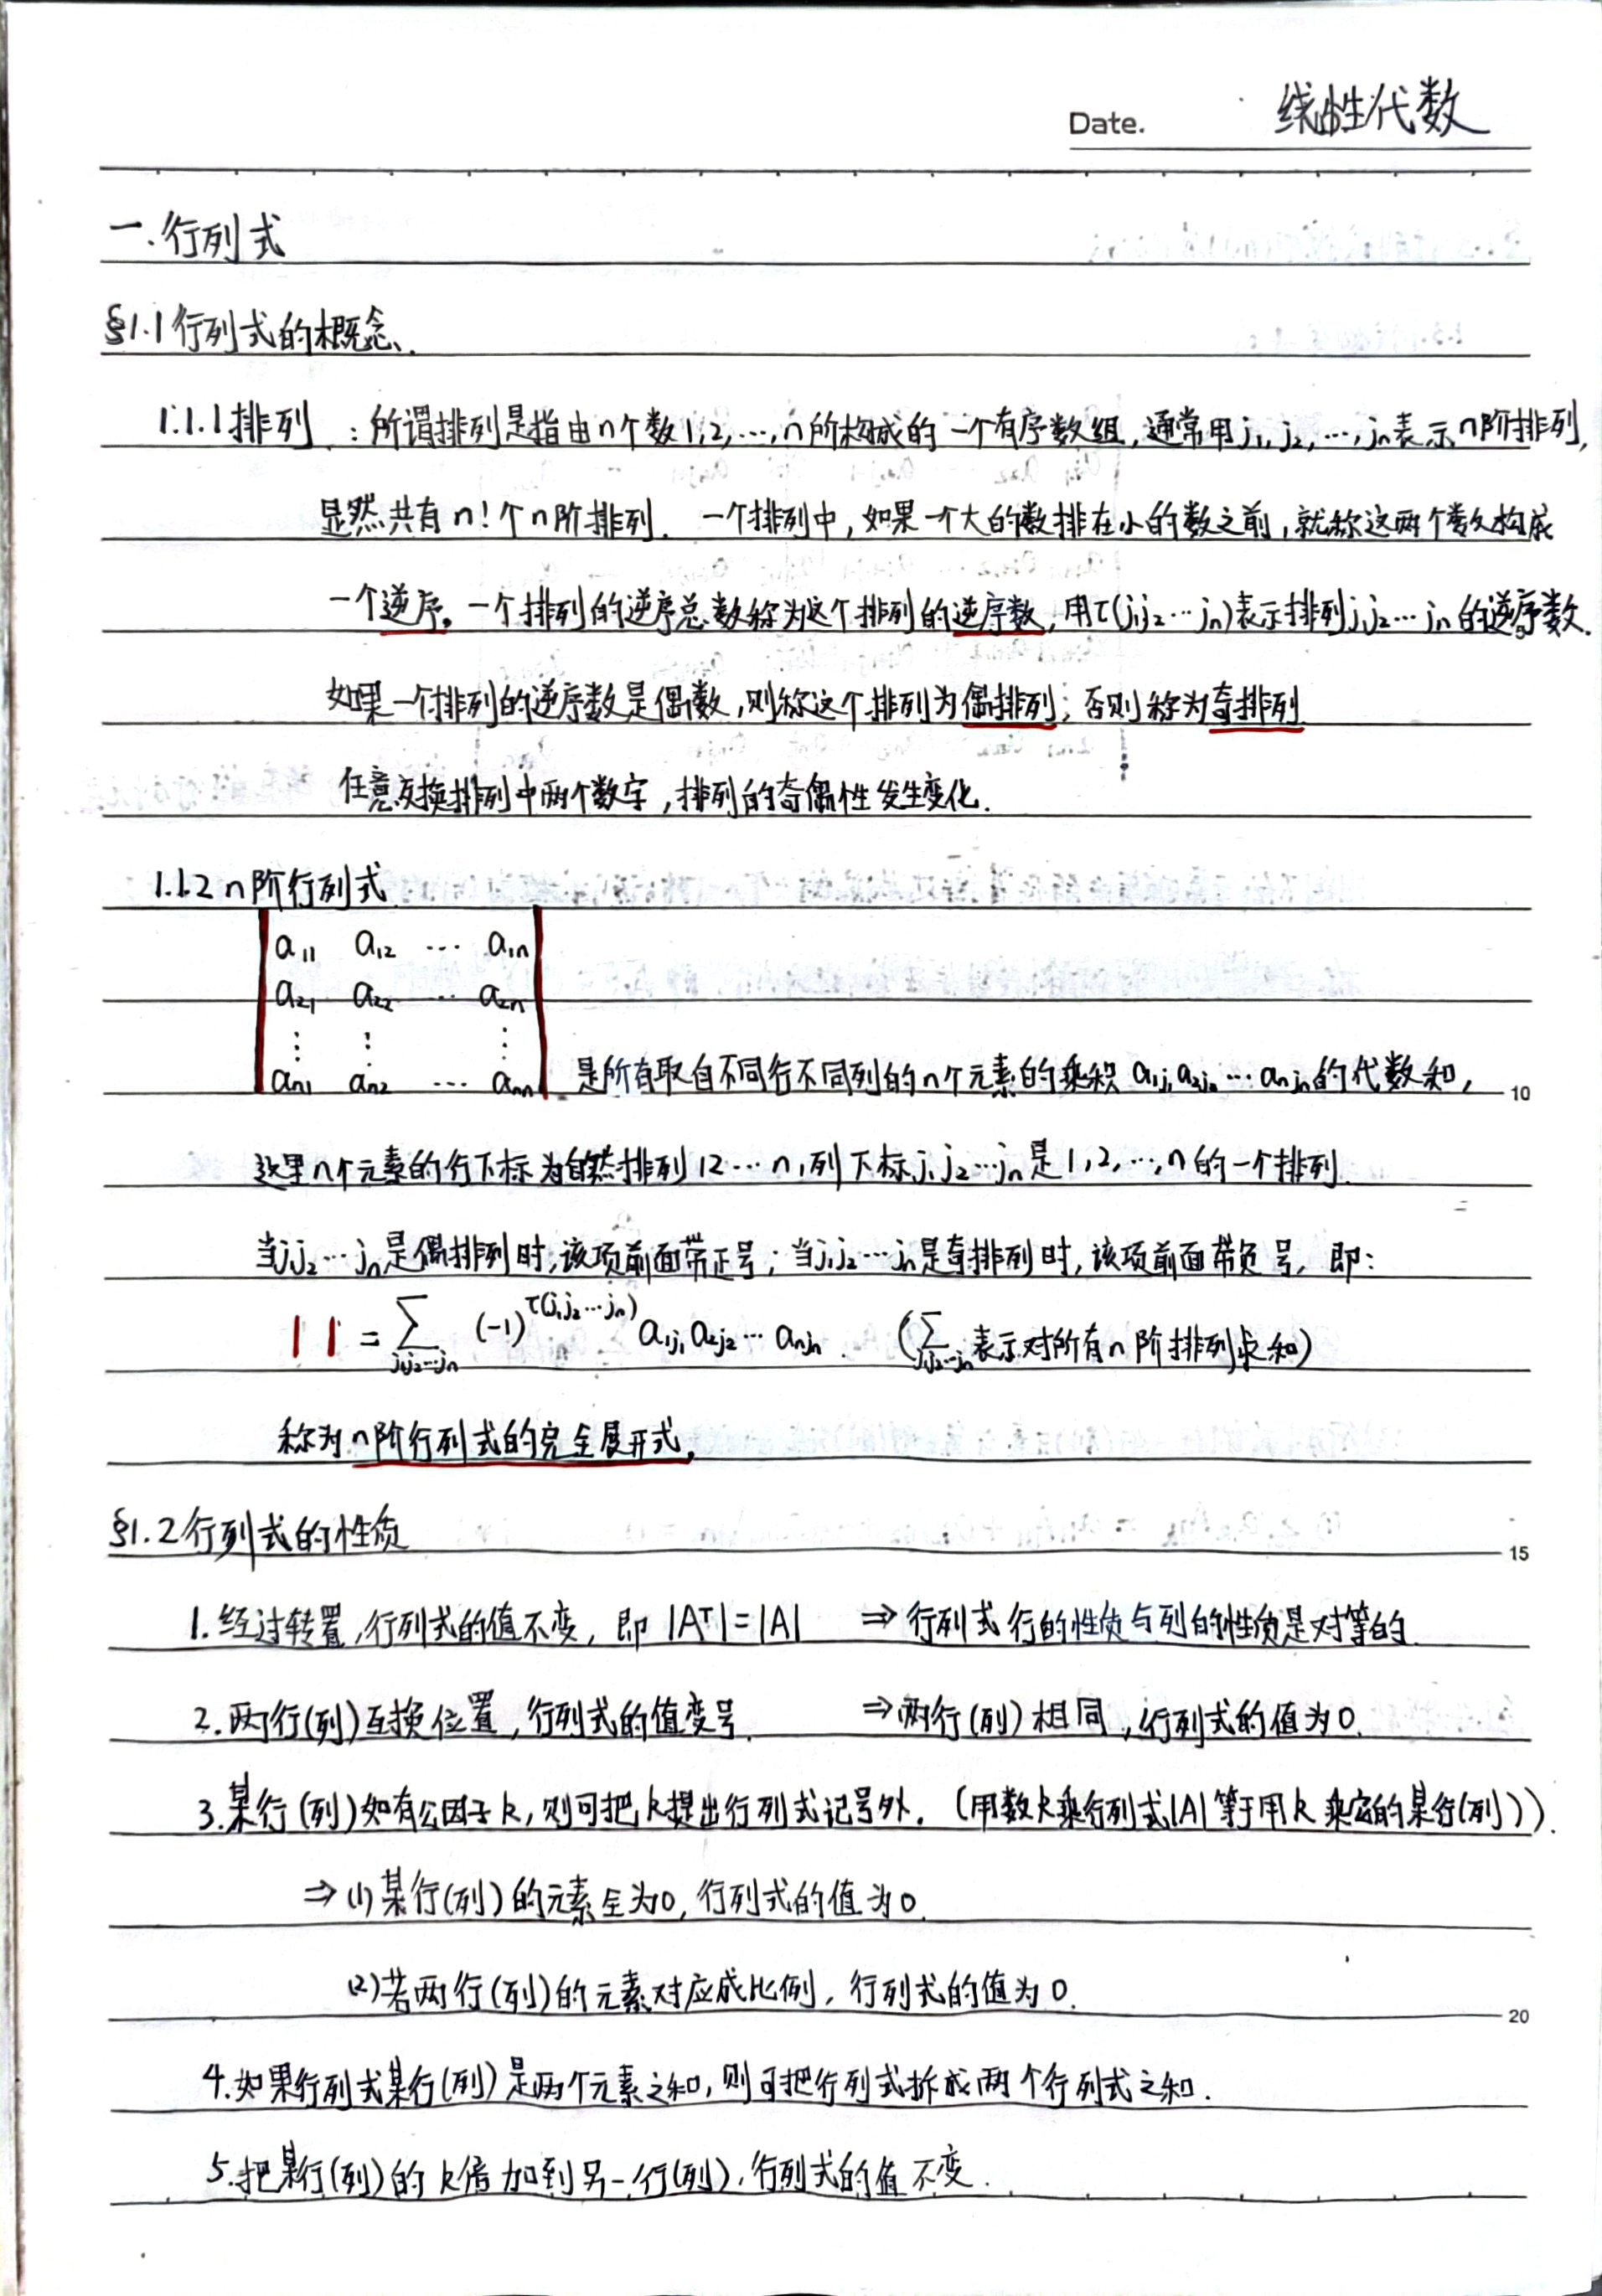 Date. 线性代数
一.行列式
§1.1行列式的概念.
1.1.1排列 : 所谓排列是指由n个数1,2,…,n所构成的一个有序数组,通常用j₁,j₂,…,jₙ表示n阶排列,
显然共有n!个n阶排列. 一个排列中,如果一个大的数排在小的数之前,就称这两个数构成
一个逆序。一个排列的逆序总数称为这个排列的逆序数,用τ(j₁j₂…jₙ)表示排列j₁j₂…jₙ的逆序数.
如果一个排列的逆序数是偶数,则称这个排列为偶排列;否则称为奇排列.
任意交换排列中两个数字,排列的奇偶性发生变化.
1.1.2 n阶行列式
a₁₁ a₁₂ … a₁ₙ
a₂₁ a₂₂ … a₂ₙ
⋮ ⋮ ⋮
aₙ₁ aₙ₂ … aₙₙ 是所有取自不同行不同列的n个元素的乘积 a₁j₁a₂j₂…aₙjₙ的代数和, 10
这里n个元素的行下标为自然排列12…n,列下标j₁j₂…jₙ是1,2,…,n的一个排列.
当j₁j₂…jₙ是偶排列时,该项前面带正号;当j₁j₂…jₙ是奇排列时,该项前面带负号,即:
| | = ∑_{j₁j₂…jₙ} (-1)^{τ(j₁j₂…jₙ)} a₁j₁a₂j₂…aₙjₙ. (∑_{j₁j₂…jₙ}表示对所有n阶排列求和)
称为n阶行列式的完全展开式.
§1.2行列式的性质 15
1.经过转置,行列式的值不变,即 |Aᵀ|=|A| ⇒行列式行的性质与列的性质是对等的.
2.两行(列)互换位置,行列式的值变号. ⇒两行(列)相同,行列式的值为0.
3.某行(列)如有公因子k,则可把k提出行列式记号外.(用数k乘行列式|A|等于用k乘它的某行(列)).
⇒(1)某行(列)的元素全为0,行列式的值为0.
(2)若两行(列)的元素对应成比例,行列式的值为0. 20
4.如果行列式某行(列)是两个元素之和,则可把行列式拆成两个行列式之和.
5.把某行(列)的k倍加到另一行(列),行列式的值不变.